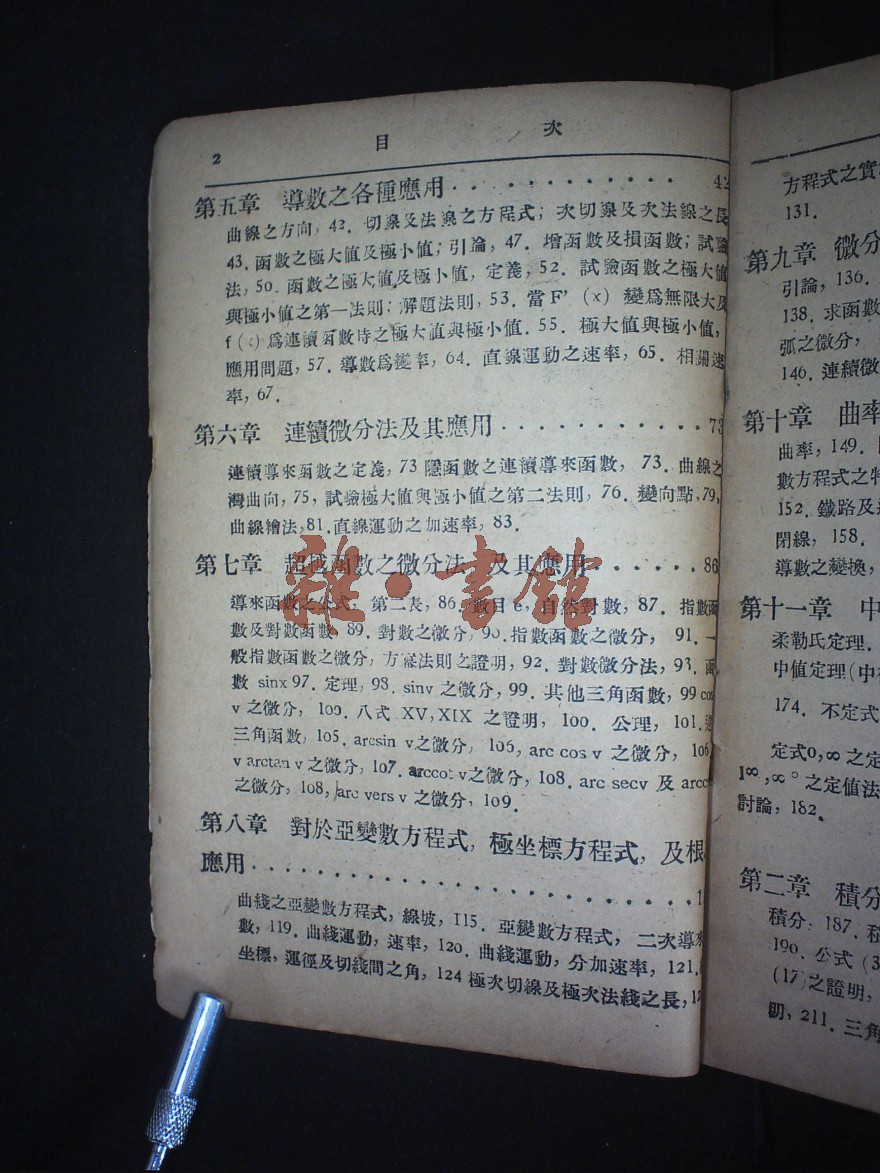 2 目 次
第五章 導數之各種應用 42
曲線之方向, 42. 切線及法線之方程式; 次切線及次法線之長
43. 函數之極大值及極小值; 引論, 47. 增函數及損函數; 試驗
法, 50. 函數之極大值及極小值, 定義, 52. 試驗函數之極大值
與極小值之第一法則: 解題法則, 53. 當 F' (x) 變爲無限大及
f (x) 爲連續函數時之極大值與極小值. 55. 極大值與極小值,
應用問題, 57. 導數爲變率, 64. 直線運動之速率, 65. 相關速
率, 67.
第六章 連續微分法及其應用 73
連續導來函數之定義, 73 隱函數之連續導來函數, 73. 曲線之
灣曲向, 75, 試驗極大值與極小值之第二法則, 76. 變向點, 79,
曲線繪法, 81. 直線運動之加速率, 83.
第七章 超越函數之微分法 及其應用 86
雜·書館
導來函數之公式, 第二表, 86. 數目 e, 自然對數, 87. 指數函
數及對數函數 89. 對數之微分, 90. 指數函數之微分, 91. 一
般指數函數之微分, 方冪法則之證明, 92. 對數微分法, 93. 函
數 sinx 97. 定理, 98. sinv 之微分, 99. 其他三角函數, 99 cos
v 之微分, 100. 八式 XV, XIX 之證明, 100. 公理, 101.
三角函數, 105. arcsin v之微分, 106, arc cos v 之微分, 106
v arctan v 之微分, 107. arccot v之微分, 108. arc secv 及 arcc
之微分, 108, arc vers v 之微分, 109.
第八章 對於亞變數方程式, 極坐標方程式, 及根
應用 1
曲綫之亞變數方程式, 線坡, 115. 亞變數方程式, 二次導來
數, 119. 曲綫運動, 速率, 120. 曲綫運動, 分加速率, 121.
坐標, 運徑及切綫間之角, 124 極次切線及極次法綫之長, 12
方程式之實
131.
第九章 微分
引論, 136.
138. 求函數
弧之微分,
146. 連續微
第十章 曲率
曲率, 149.
數方程式之特
152. 鐵路及
閉線, 158.
導數之變換,
第十一章 中
柔勒氏定理.
中值定理 (中
174. 不定式
定式0,∞ 之定
1∞,∞° 之定值法
討論, 182.
第二章 積分
積分: 187. 積
190. 公式 (3
(17) 之證明,
明, 211. 三角